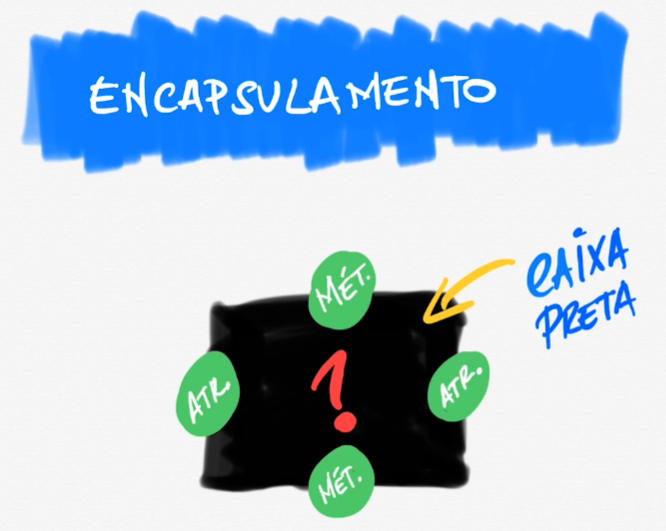 ENCAPSULAMENTO
CAIXA
PRETA
MÉT.
ATR.
?
ATR.
MÉT.